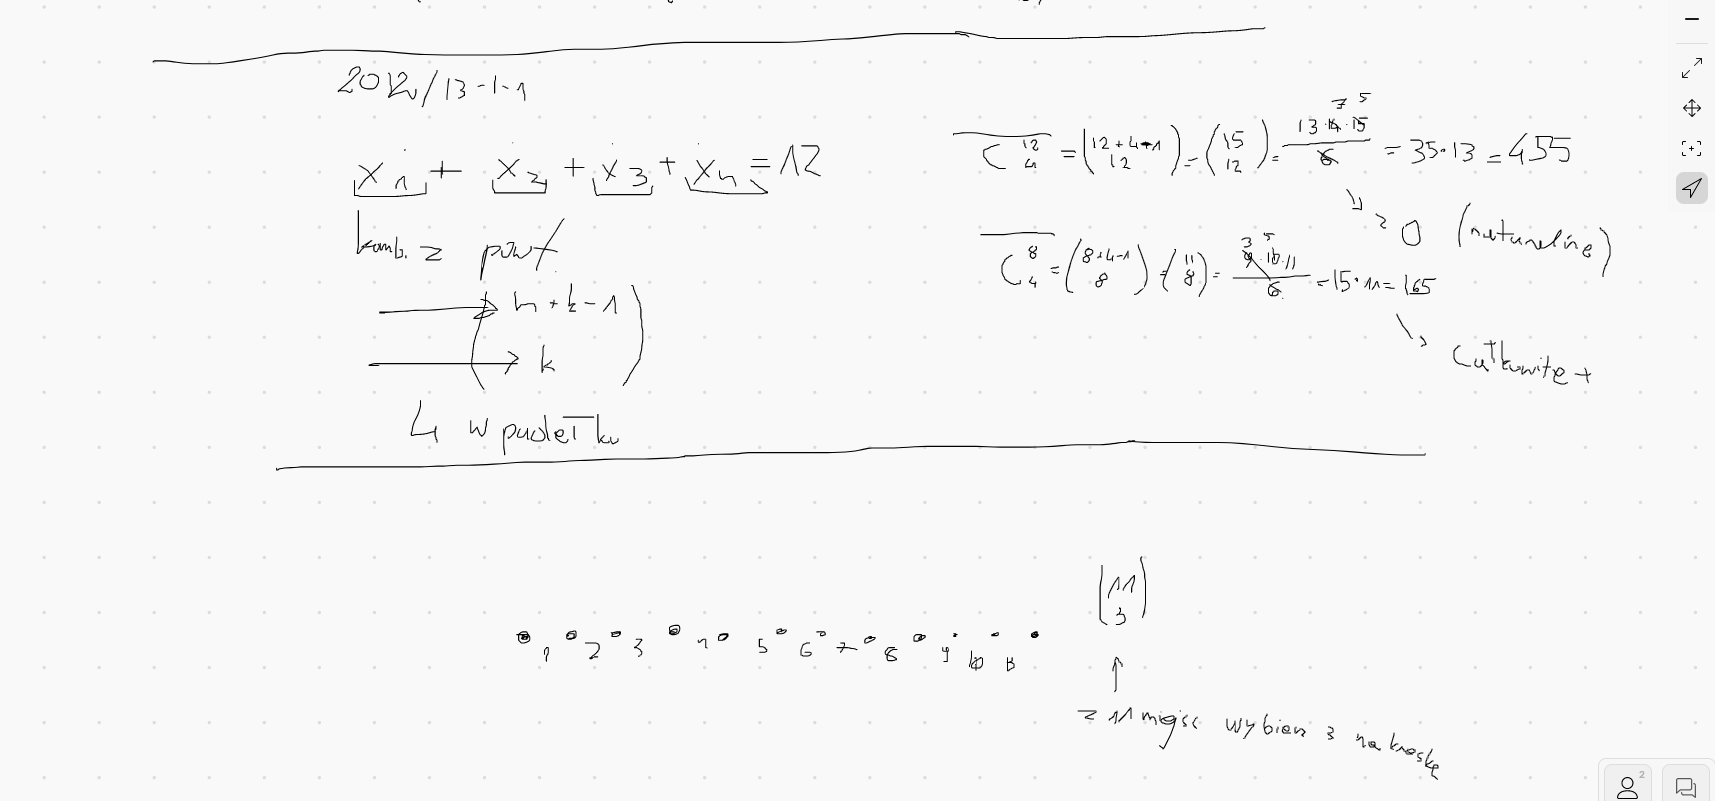 2012/13-1-1
x₁ + x₂ + x₃ + x₄ = 12
komb. z powt.
(n+k-1
k)
4 w pudełku
C̅ ¹²₄ = (12+4-1 / 12) = (15 / 12) = 13·14·15 / 6 = 35·13 = 455
7 5
z 0 (naturalne)
C̅ ⁸₄ = (8+4-1 / 8) = (11 / 8) = 9·10·11 / 6 = 15·11 = 165
3 5
całkowite +
(11
3)
1 2 3 4 5 6 7 8 9 10 11
z 11 miejsc wybierz 3 na kreskę
2